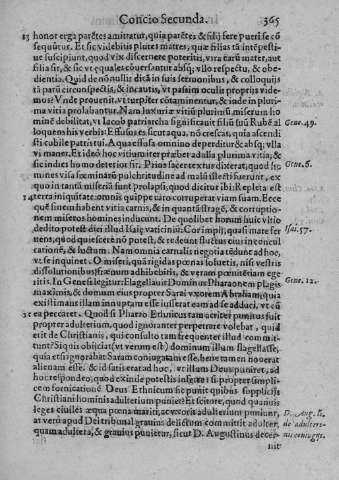 Concio Secunda. 365
honor erga parẽtes amittatur, quia parẽtes & filij fere pueri se cõ
sequũtur. Et sic videbitis plures matres, quæ filias tã intẽpestiue
suscipiunt, quod vix discernere poteritis, vtra earũ mater, aut
filia sit, & sic vt equales cõuersantur absq; vllo respectu, & obedientia.
Quid de nõ nullis dicã in suis sermonibus, & colloquijs
tã parũ circunspectis, & incautis, vt passim oculis proprijs videmus?
Vnde prouenit, vt turpiter cõtaminentur, & inde in plurima
vitia prolabantur. Nam luxuriæ vitiũ plurimũ miserum hominẽ
debilitat, vt Iacob patriarcha significauit filiũ suũ Rubẽ alloquens
his verbis: Effusus es sicut aqua, nõ crescas, quia ascendisti Gene. 49.
cubile patris tui. Aqua effusa omnino deperditur & absq; vlla
vi manet. Ex ideo hoc vitiũ inter præfert ad alia plurima vitia, &
sic indies homo deterior fit. Prius sacer textus dixerat, quod homines Gene. 6.
visa fœminarũ pulchritudine ad malũ illectisfuerunt, ex
quo in tanta miseria sunt prolapsi, quod dicitur ibi: Repleta est
terra iniquitate. omnis quippe caro corruperat viam suam. Ecce
quẽ finem habent vitia carnis, & in quantã stragẽ, & corruptionem
miseros homines inducunt. De quolibet horum huic vitio
dedito potest dici illud Isaię vaticiniũ: Cor impij, quasi mare feruens, Isai. 57.
quod quiescere nõ potest, & redeunt fluctus eius in conculcationẽ,
& luctum: Nam omnia carnalis negotia tẽdunt ad hoc,
vt se inquinet. O miseri, quã rigidas pœnas soluetis, nisi vestris
dissolutionibus frænum adhibebitis, & veram pœnitẽtiam egeritis.
In Genesi legitur: Flagellauit Dominus Pharaonem plagis Gene. 12.
maximis, & domum eius propter Sarai vxorem Abraham, quia
existimans illam innuptam esse iusserat eam ad se adduci, vt cũ
ea peccaret. Quod si Pharao Ethnicus tam acriter punitus fuit
propter adulterium, quod ignoranter perpetrare volebat, quid
erit de Christianis, qui consulto tam frequenter illud committunt?
Si quis obijciat (vt verum est) dominum illum flagellasse,
quia etsi ignorabat Saram coniugatam esse, bene tamen nouerat
alienam esse. & id satis erat ad hoc, vt illum Deus puniret, ad
hoc respondeo, quod exinde potestis inferre: si propter simplicem
fornicationẽ Deus Ethnicum sic punit, quibus supplicijs
Christiani hominis adulterium puniet? Et scitote, quod quanuis
leges ciuiles æqua pœna mariti, ac vxoris adulterium puniunt, D. Aug. li.
at verò apud Dei tribunal grauius delictum committit adulter, de adulteri-
quam adultera, & grauius punietur, sicut D. Augustinus decernit nis coniugijs.